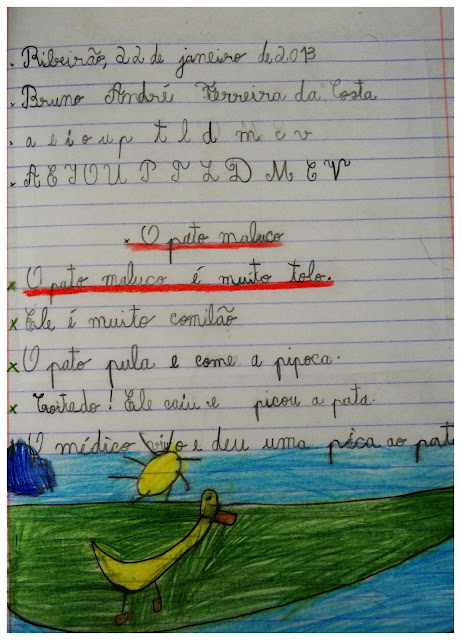 Ribeirão, 22 de janeiro de 2013
Bruno André Ferreira da Costa
a e i o u p t l d m c v
A E I O U P T L D M C V
O pato maluco
O pato maluco é muito tolo.
Ele é muito comilão
O pato pula e come a pipoca.
Coitado! Ele caiu e picou a pata.
O médico veio e deu uma pica ao pato